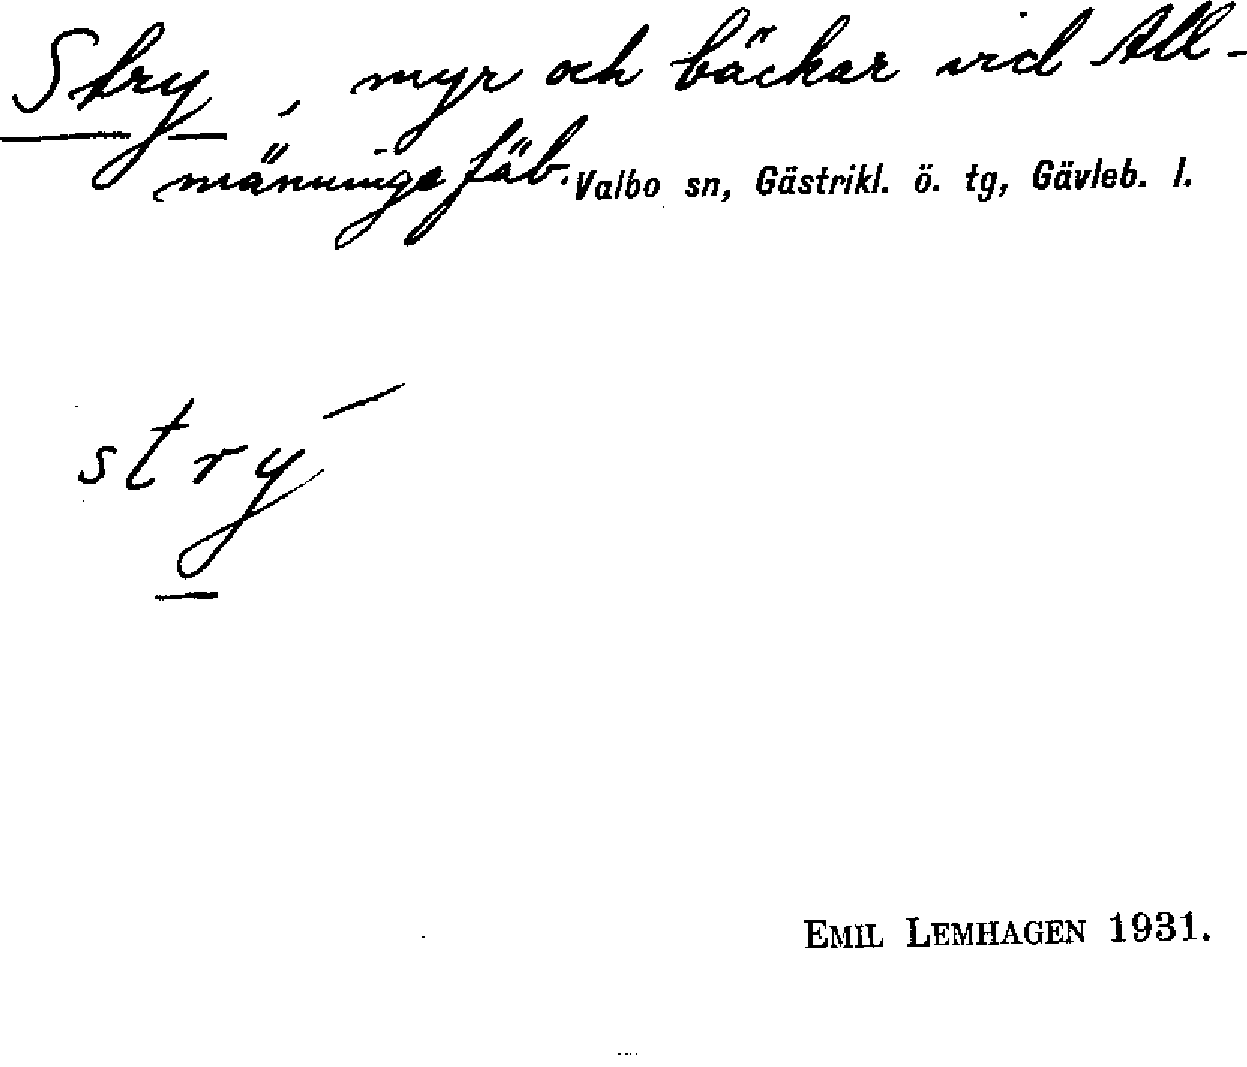 Stry, myr och bäckar vid All-
männinge fäb. Valbo sn, Gästrikl. ö. tg, Gävleb. l.
stry´
EMIL LEMHAGEN 1931.